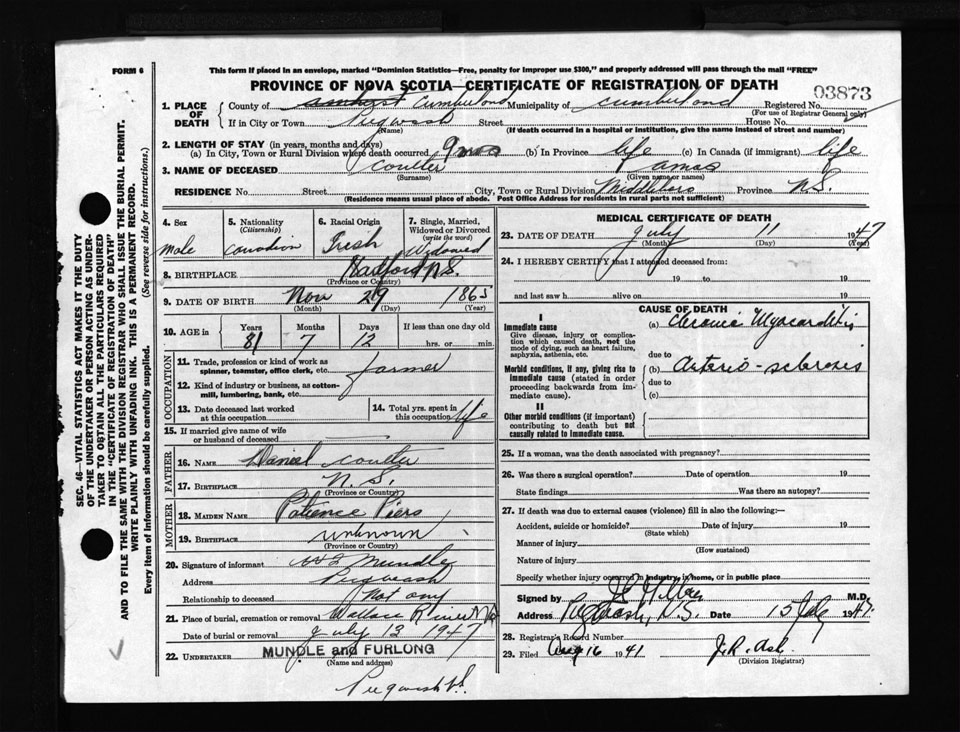 FORM 6
This form if placed in an envelope, marked "Dominion Statistics—Free, penalty for improper use $300," and properly addressed will pass through the mail "FREE"
PROVINCE OF NOVA SCOTIA—CERTIFICATE OF REGISTRATION OF DEATH
03873
1. PLACE OF DEATH
County of Amherst Cumberland Municipality of Cumberland Registered No.
(For use of Registrar General only)
If in City or Town Pugwash Street House No.
(Name) (If death occurred in a hospital or institution, give the name instead of street and number)
2. LENGTH OF STAY (in years, months and days)
(a) In City, Town or Rural Division where death occurred 9 mos (b) In Province life (c) In Canada (if immigrant) life
3. NAME OF DECEASED Coulter Amas
(Surname) (Given name or names)
RESIDENCE No. Street City, Town or Rural Division Middleboro Province N.S.
(Residence means usual place of abode. Post Office Address for residents in rural parts not sufficient)
4. Sex Male
5. Nationality (Citizenship) Canadian
6. Racial Origin Irish
7. Single, Married, Widowed or Divorced (write the word) Widowed
8. BIRTHPLACE N.S.
(Province or Country)
9. DATE OF BIRTH Nov 29 1865
(Month) (Day) (Year)
10. AGE in Years Months Days If less than one day old
81 7 12 hrs. or min.
OCCUPATION
11. Trade, profession or kind of work as spinner, teamster, office clerk, etc. farmer
12. Kind of industry or business, as cotton-mill, lumbering, bank, etc.
13. Date deceased last worked at this occupation
14. Total yrs. spent in this occupation life
15. If married give name of wife or husband of deceased
FATHER
16. NAME Daniel Coulter
17. BIRTHPLACE N.S.
(Province or Country)
MOTHER
18. MAIDEN NAME Patience Piers
19. BIRTHPLACE unknown
(Province or Country)
20. Signature of informant Mundle
Address Pugwash
Relationship to deceased Not any
21. Place of burial, cremation or removal Wallace River N.S.
Date of burial or removal July 13 1947
22. UNDERTAKER MUNDLE and FURLONG
(Name and address)
Pugwash N.S.
MEDICAL CERTIFICATE OF DEATH
23. DATE OF DEATH July 11 1947
(Month) (Day) (Year)
24. I HEREBY CERTIFY that I attended deceased from:
19 to 19
and last saw h alive on 19
CAUSE OF DEATH
I
Immediate cause
Give disease, injury or complication which caused death, not the mode of dying, such as heart failure, asphyxia, asthenia, etc.
(a) Chronic Myocarditis
due to
Morbid conditions, if any, giving rise to immediate cause (stated in order proceeding backwards from immediate cause).
(b) Arterio-sclerosis
due to
(c)
II
Other morbid conditions (if important) contributing to death but not causally related to immediate cause.
25. If a woman, was the death associated with pregnancy?
26. Was there a surgical operation? Date of operation 19
State findings Was there an autopsy?
27. If death was due to external causes (violence) fill in also the following:—
Accident, suicide or homicide? Date of injury 19
(State which)
Manner of injury
(How sustained)
Nature of injury
Specify whether injury occurred in industry, in home, or in public place
Signed by M.D.
Address Pugwash, N.S. Date 15 July 1947
28. Registrar's Record Number
29. Filed Aug 16 1941 J.R. Ash
(Division Registrar)
SEC. 46—VITAL STATISTICS ACT MAKES IT THE DUTY
OF THE UNDERTAKER OR PERSON ACTING AS UNDER-
TAKER TO OBTAIN ALL THE PARTICULARS REQUIRED
IN THE "CERTIFICATE OF REGISTRATION OF DEATH"
AND TO FILE THE SAME WITH THE DIVISION REGISTRAR WHO SHALL ISSUE THE BURIAL PERMIT.
WRITE PLAINLY WITH UNFADING INK. THIS IS A PERMANENT RECORD.
Every item of information should be carefully supplied. (See reverse side for instructions.)